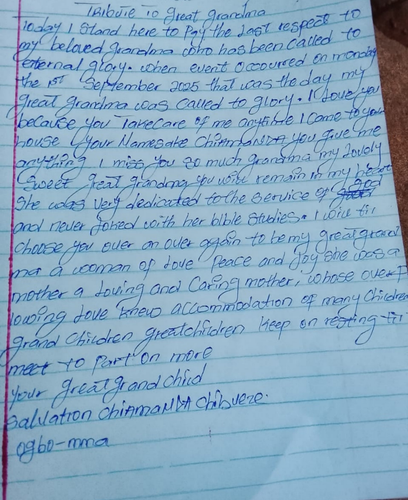 Tribute to great grandma
Today I stand here to pay the last respect to
my beloved Grandma who has been called to
eternal glory. when event occoured on monday
the 1st September 2025 that was the day my
great grandma was called to glory. I love you
because you Takecare of me anytime I come to your
house (your Namesake ChinmanDA you give me
anything I miss you so much grandma my lovely
Sweet great grandma you will remain in my heart
She was very dedicated to the service of God
and never joked with her bible studies. I will
choose you over an over again to be my great grand
ma a woman of love Peace and joy she was a
mother a loving and caring mother, whose overf
lowing love knew accommodation of many children
grand children great children keep on resting till
meet to part on more
your great grand child
Salvation ChinmaNDA Chibuere.
ogbo-mma